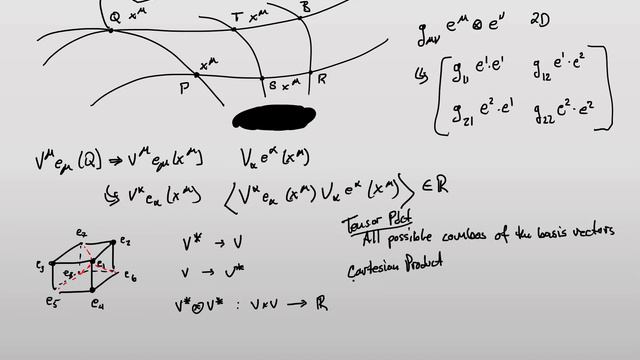 Q x^μ
T x^μ
B
P x^μ
S x^μ
R
g_μν e^μ ⊗ e^ν 2D
↳ [ g_11 e^1·e^1 g_12 e^1·e^2
g_21 e^2·e^1 g_22 e^2·e^2 ]
V^μ e_μ (Q) ⇒ V^μ e_μ (x^μ) V_α e^α (x^μ)
↳ V^α e_α (x^μ) ⟨ V^α e_α (x^μ) V_α e^α (x^μ) ⟩ ∈ ℝ
Tensor Pdct
All possible combos of the basis vectors
Cartesian Product
e_2
e_3
e_1
e_6
e_5
e_4
V* → V
V → V*
V* ⊗ V* : V×V → ℝ